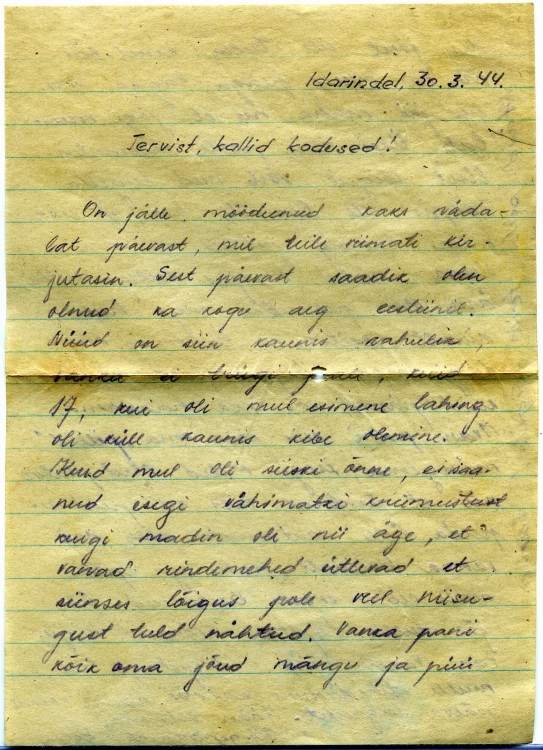 Idarindel, 30.3.44.
Tervist, kallid kodused!
On jälle möödunud kaks näda-
lat päevast, mil teile viimati kir-
jutasin. Sest päevast saadik olen
olnud ka kogu aeg eesliinil.
Nüüd on siin kaunis rahulik,
vanka ei tüügi peale, kuid
17, kui oli mul esimene lahing
oli küll kaunis kibe olemine.
Kuid mul oli siiski õnne, ei saa-
nud isegi vähimatki kriimustust
kuigi madin oli nii äge, et
vanad rindemehed ütlevad et
siinses lõigus pole veel niisu-
gust tuld nähtud. Vanka pani
kõik oma jõud mängu ja püü